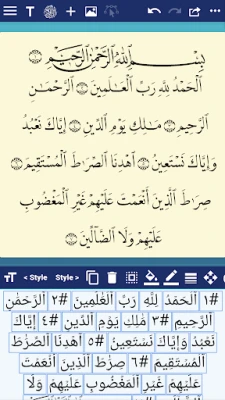 T
بِسْمِ ٱللَّهِ ٱلرَّحْمَٰنِ ٱلرَّحِيمِ ۝١
ٱلْحَمْدُ لِلَّهِ رَبِّ ٱلْعَٰلَمِينَ ۝٢ ٱلرَّحْمَٰنِ
ٱلرَّحِيمِ ۝٣ مَٰلِكِ يَوْمِ ٱلدِّينِ ۝٤ إِيَّاكَ نَعْبُدُ
وَإِيَّاكَ نَسْتَعِينُ ۝٥ ٱهْدِنَا ٱلصِّرَٰطَ ٱلْمُسْتَقِيمَ ۝٦
صِرَٰطَ ٱلَّذِينَ أَنْعَمْتَ عَلَيْهِمْ غَيْرِ ٱلْمَغْضُوبِ
عَلَيْهِمْ وَلَا ٱلضَّآلِّينَ ۝٧
TT < Style Style >
#١ ٱلْحَمْدُ لِلَّهِ رَبِّ ٱلْعَٰلَمِينَ #٢ ٱلرَّحْمَٰنِ
ٱلرَّحِيمِ #٣ مَٰلِكِ يَوْمِ ٱلدِّينِ #٤ إِيَّاكَ
نَعْبُدُ وَإِيَّاكَ نَسْتَعِينُ #٥ ٱهْدِنَا ٱلصِّرَٰطَ
ٱلْمُسْتَقِيمَ #٦ صِرَٰطَ ٱلَّذِينَ أَنْعَمْتَ
عَلَيْهِمْ غَيْرِ ٱلْمَغْضُوبِ عَلَيْهِمْ وَلَا